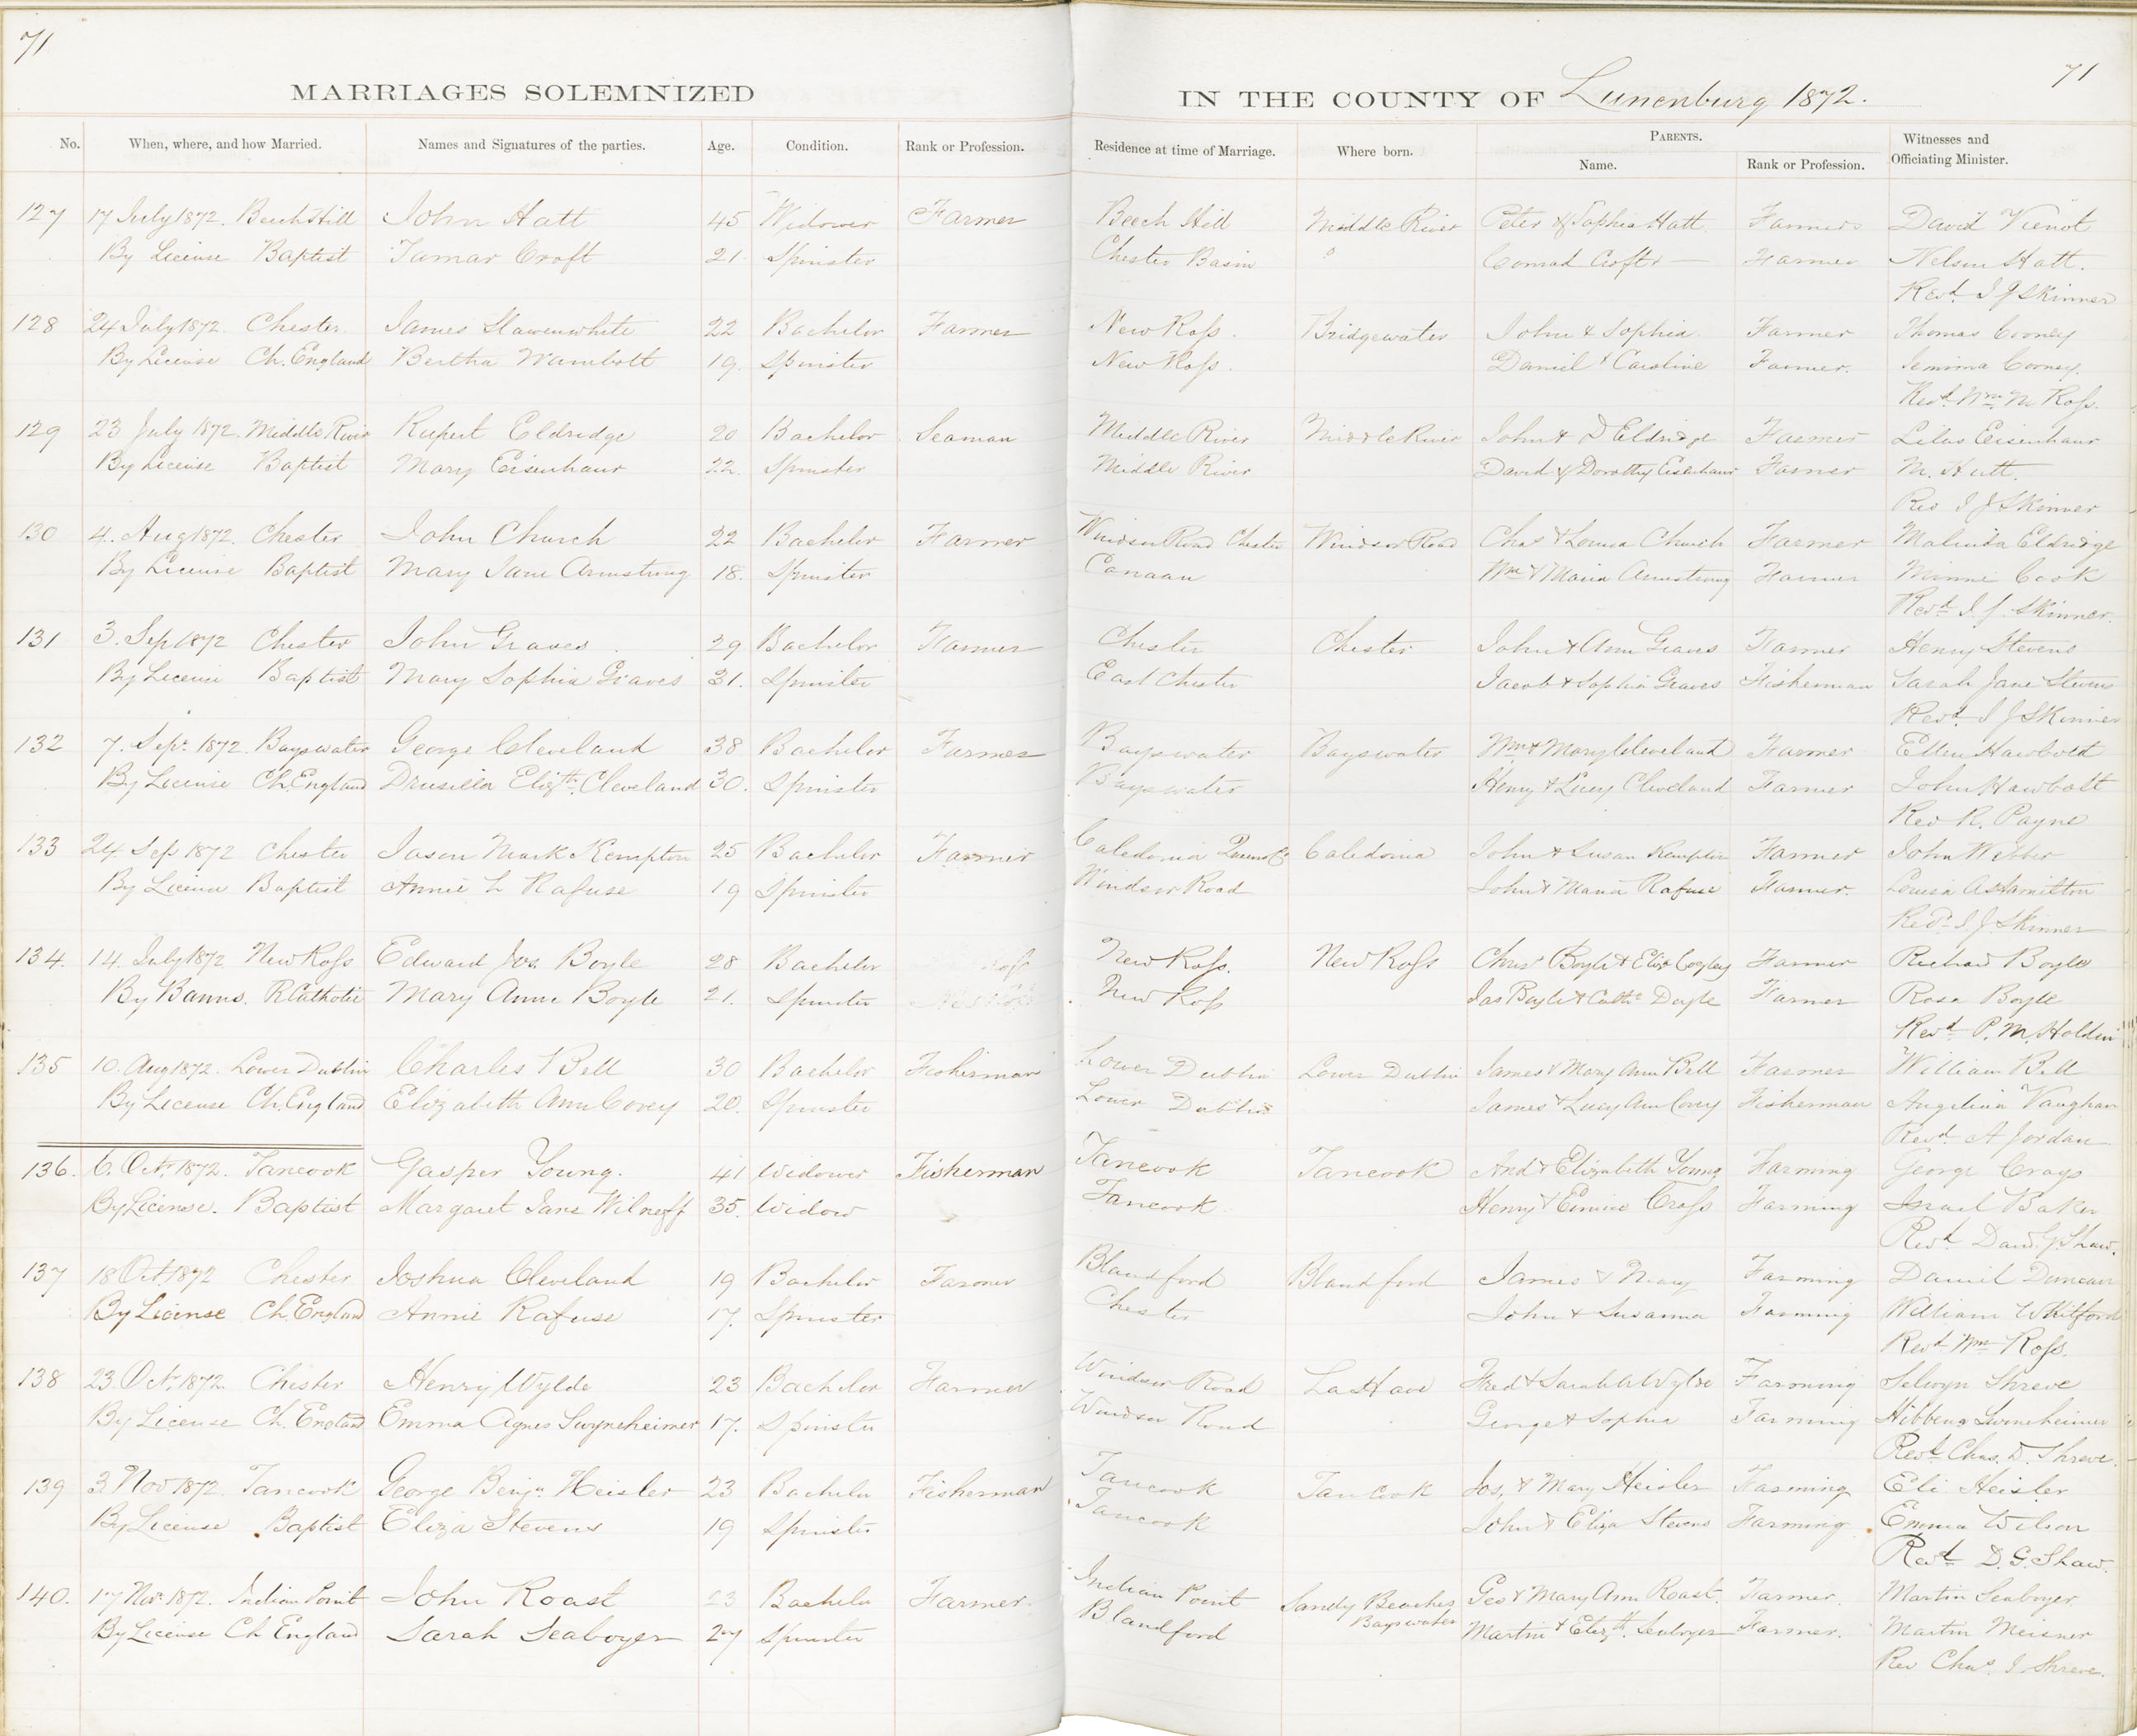 71
71
MARRIAGES SOLEMNIZED IN THE COUNTY OF Lunenburg 1872.
No. When, where, and how Married. Names and Signatures of the parties. Age. Condition. Rank or Profession. Residence at time of Marriage. Where born. PARENTS. Name. Rank or Profession. Witnesses and Officiating Minister.
127 17 July 1872. Beech Hill John Hatt 45 Widower Farmer Beech Hill Middle River Peter & Sophia Hatt Farmer David Vienot
By License Baptist Tamar Croft 21 Spinster Chester Basin " Conrad Croft Farmer Nelson Hatt.
Revd. I J Skinner
128 24 July 1872. Chester James Slawenwhite 22 Bachelor Farmer New Ross. Bridgewater John & Sophia Farmer Thomas Cooney
By License Ch. England Bertha Wambolt 19. Spinster New Ross. Daniel & Caroline Farmer. Jemima Cooney.
Revd. Wm. Ross.
129 23 July 1872. Middle River Rupert Eldredge 20 Bachelor Seaman Middle River Middle River John & D Eldridge Farmer Silas Eisenhaur
By License Baptist Mary Eisenhaur 22. Spinster Middle River David & Dorothy Eisenhaur Farmer M. Hatt.
Rev I J Skinner
130 4. Aug 1872. Chester John Church 22 Bachelor Farmer Windsor Road Chester Windsor Road Chas & Louisa Church Farmer Malinda Eldridge
By License Baptist Mary Jane Armstrong 18. Spinster Canaan Wm & Maria Armstrong Farmer Minnie Cook
Revd. I. J. Skinner.
131 3. Sep 1872 Chester John Graves 29 Bachelor Farmer Chester Chester John & Ann Graves Farmer Henry Stevens
By License Baptist Mary Sophia Graves 31. Spinster East Chester Jacob & Sophia Graves Fisherman Sarah Jane Stevens
Revd. I J Skinner
132 7. Sept. 1872. Bayswater George Cleveland 38 Bachelor Farmer Bayswater Bayswater Wm & Mary Cleveland Farmer Ellen Hawbolt
By License Ch. England Drusilla Elizth. Cleveland 30. Spinster Bayswater Henry & Lucy Cleveland Farmer John Hawbolt
Rev R. Payne
133 24 Sep 1872 Chester Jason Mark Kempton 25 Bachelor Farmer Caledonia Queens Co Caledonia John & Susan Kempton Farmer John Webber
By License Baptist Annie L Rafuse 19 Spinster Windsor Road John & Maria Rafuse Farmer. Louisa A Hamilton
Revd. I. J Skinner
134. 14. July 1872 New Ross Edward Jos. Boyle 28 Bachelor New Ross. New Ross Chrisr Boyle & Eliz Farmer Richard Boyle
By Banns. R Catholic Mary Anne Boyle 21. Spinster New Ross Jas Boyle & Cathe Doyle Farmer Rosa Boyle
Revd. P. M. Holden
135 10. Aug 1872. Lower Dublin Charles Bell 30 Bachelor Fisherman Lower Dublin Lower Dublin James & Mary Ann Bell Farmer William Bell
By License Ch. England Elizabeth Ann Covey 20. Spinster Lower Dublin James & Lucy Ann Covey Fisherman Angelina Vaughan
Revd. A Jordan
136. 6. Oct. 1872. Tancook Gasper Young. 41 Widower Fisherman Tancook Tancook And & Elizabeth Young Farming George Crays
By License. Baptist Margaret Jane Wilneff 35. Widow Tancook Henry & Cross Farming Israel Baker
Revd. David. G. Shaw.
137 18 Oct 1872 Chester Joshua Cleveland 19 Bachelor Farmer Blandford Blandford James & Mary Farming Daniel Duncan
By License Ch. England Annie Rafuse 17. Spinster Chester John & Susanna Farming William Whitford
Revd. Wm Ross.
138 23. Oct. 1872. Chester Henry Wylde 23 Bachelor Farmer Windsor Road LaHave Fred & Sarah A Wylde Farming Selwyn Shreve
By License Ch. England Emma Agnes Swyneheimer 17. Spinster Windsor Road George & Sophia Farming Hibbens Swineheimer
Revd. Chas. D. Shreve.
139 3 Nov 1872. Tancook George Benjn. Heisler 23 Bachelor Fisherman Tancook Tancook Jos. & Mary Heisler Farming Eli Heisler
By License Baptist Eliza Stevens 19 Spinster Tancook John & Eliza Stevens Farming Emma Wilson
Revd. D. G. Shaw.
140. 17 Nov. 1872. Indian Point John Roast 23 Bachelor Farmer. Indian Point Sandy Beaches Geo & Mary Ann Roast. Farmer. Martin Seaboyer
By License Ch England Sarah Seaboyer 27 Spinster Blandford Bayswater Martin & Elizth. Seaboyer Farmer. Martin Meisner
Rev Chas. J. Shreve.